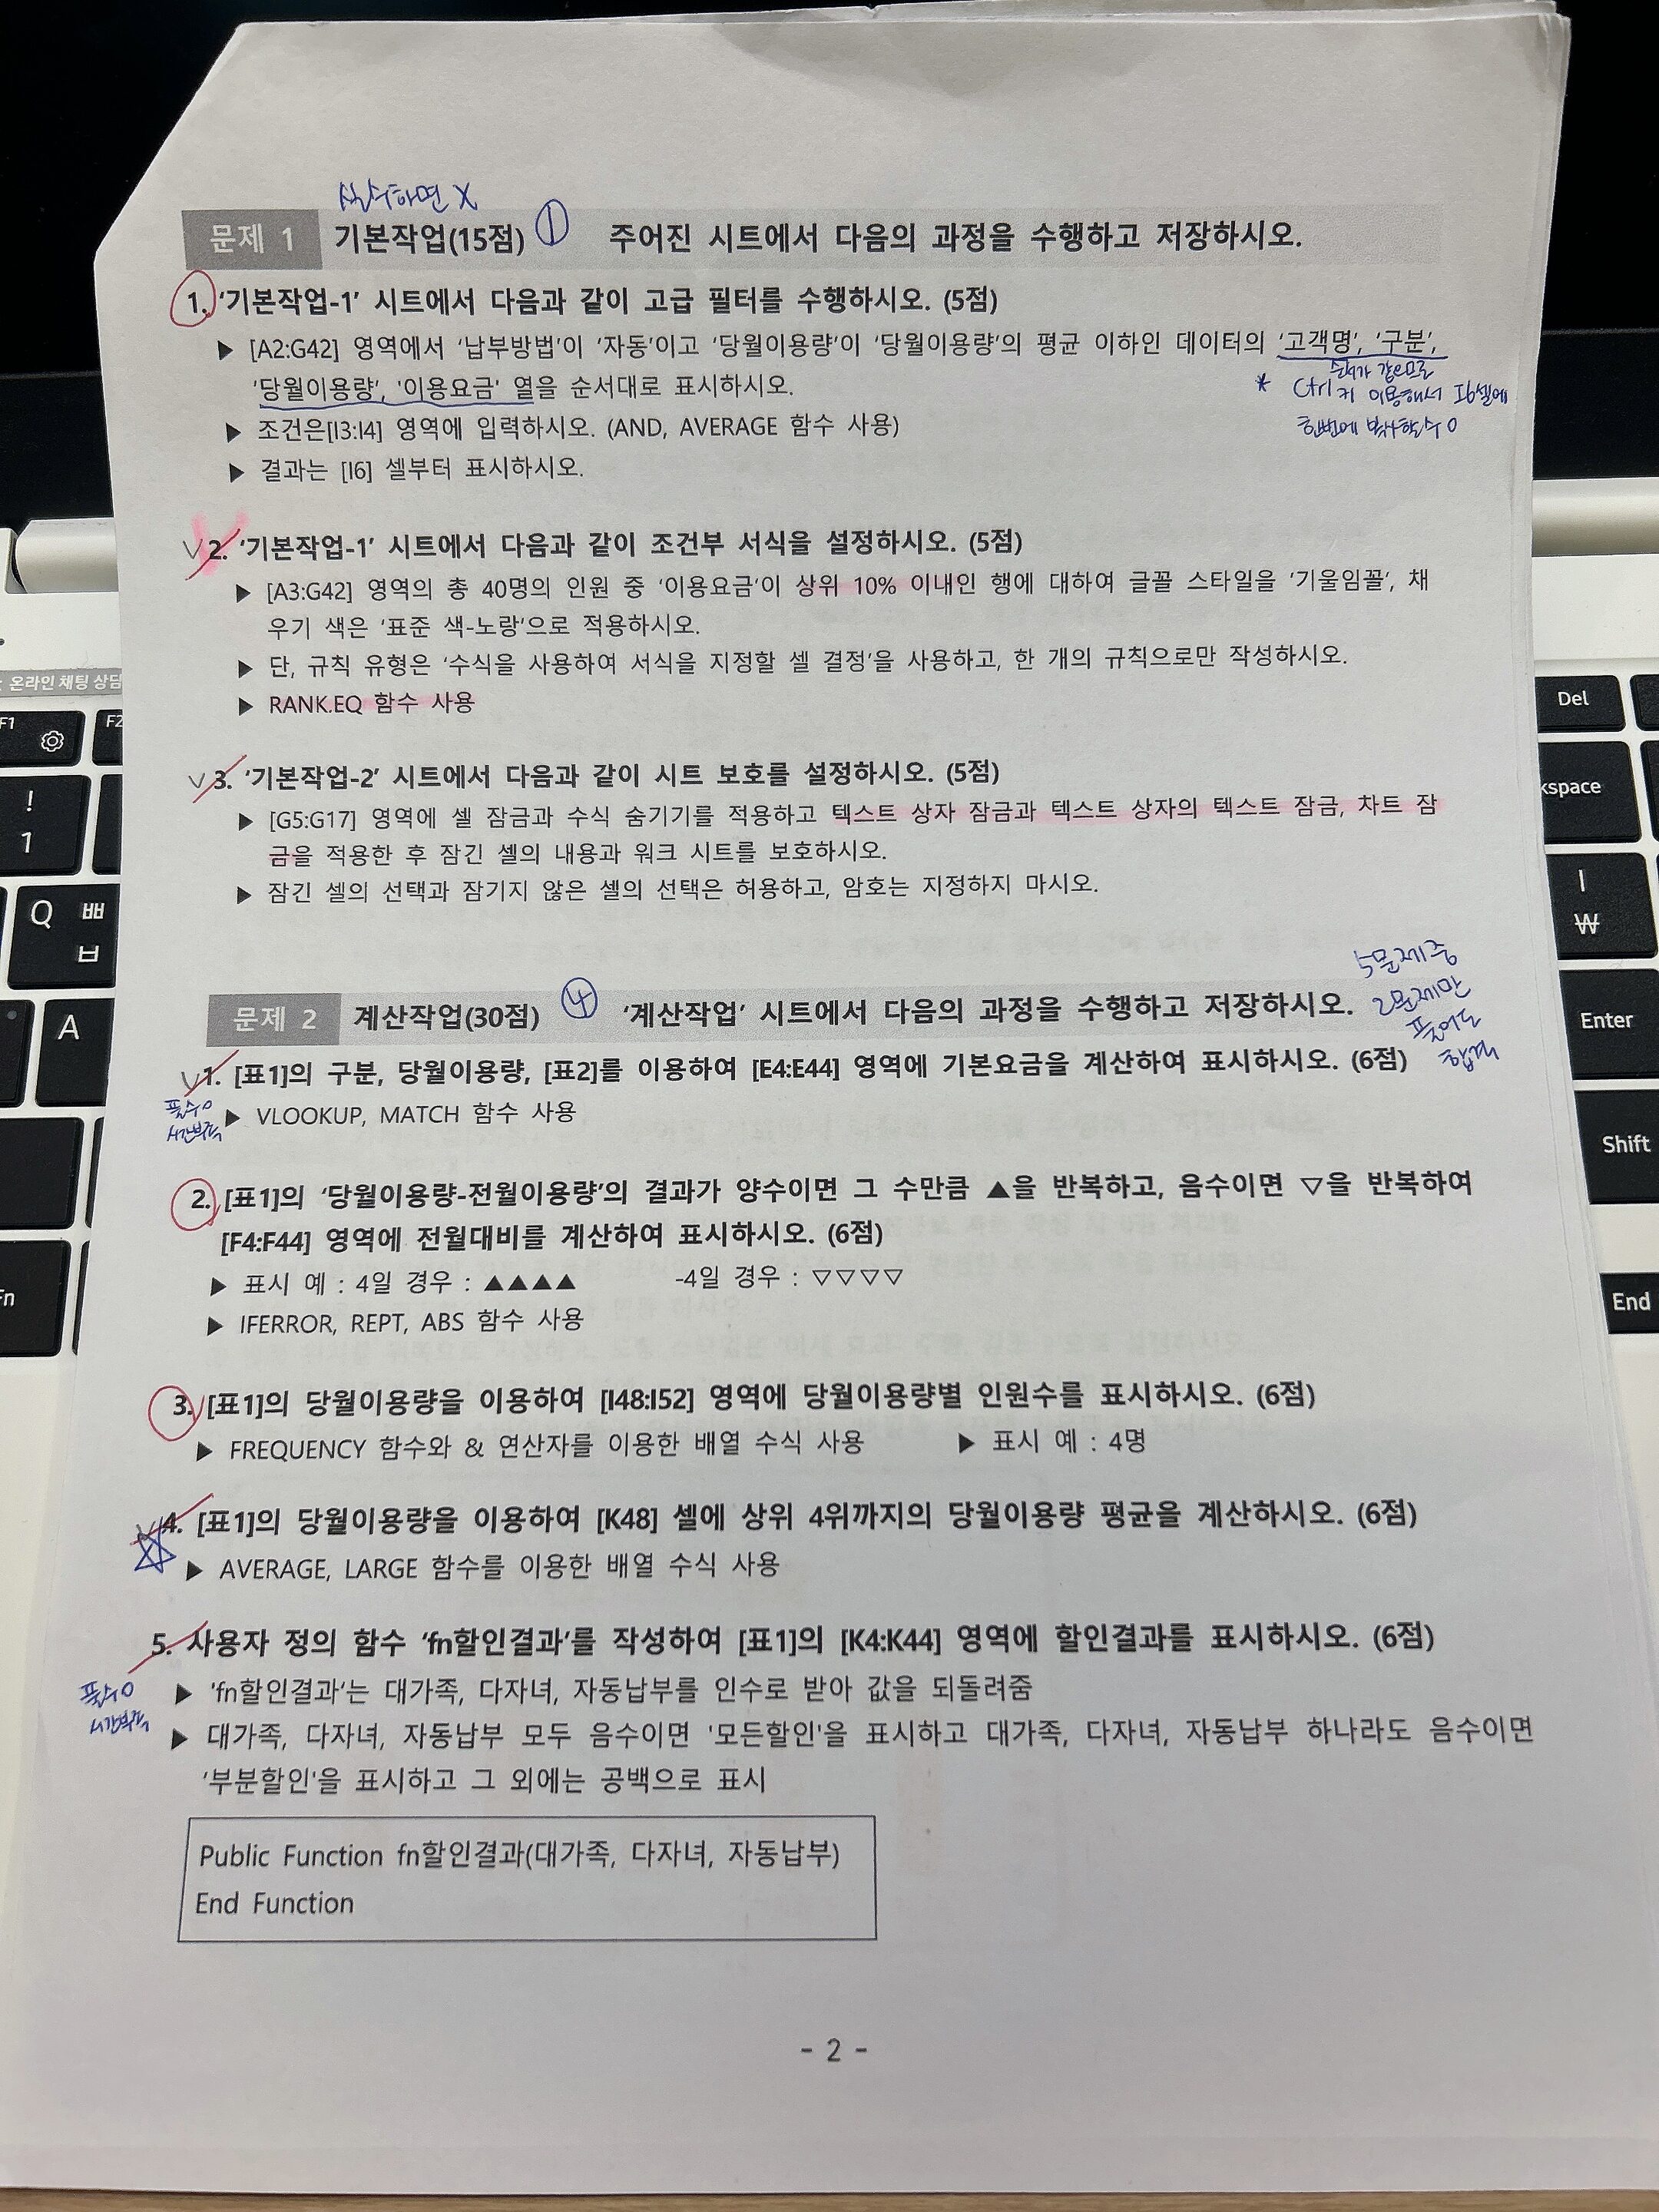 실수하면 X
문제 1 기본작업(15점) ① 주어진 시트에서 다음의 과정을 수행하고 저장하시오.
1. '기본작업-1' 시트에서 다음과 같이 고급 필터를 수행하시오. (5점)
▶ [A2:G42] 영역에서 '납부방법'이 '자동'이고 '당월이용량'이 '당월이용량'의 평균 이하인 데이터의 '고객명', '구분',
'당월이용량', '이용요금' 열을 순서대로 표시하시오.
순서가 같으므로
* Ctrl키 이용해서 I6셀에
한번에 복사할수 O
▶ 조건은[I3:I4] 영역에 입력하시오. (AND, AVERAGE 함수 사용)
▶ 결과는 [I6] 셀부터 표시하시오.
2. '기본작업-1' 시트에서 다음과 같이 조건부 서식을 설정하시오. (5점)
▶ [A3:G42] 영역의 총 40명의 인원 중 '이용요금'이 상위 10% 이내인 행에 대하여 글꼴 스타일을 '기울임꼴', 채
우기 색은 '표준 색-노랑'으로 적용하시오.
▶ 단, 규칙 유형은 '수식을 사용하여 서식을 지정할 셀 결정'을 사용하고, 한 개의 규칙으로만 작성하시오.
▶ RANK.EQ 함수 사용
3. '기본작업-2' 시트에서 다음과 같이 시트 보호를 설정하시오. (5점)
▶ [G5:G17] 영역에 셀 잠금과 수식 숨기기를 적용하고 텍스트 상자 잠금과 텍스트 상자의 텍스트 잠금, 차트 잠
금을 적용한 후 잠긴 셀의 내용과 워크 시트를 보호하시오.
▶ 잠긴 셀의 선택과 잠기지 않은 셀의 선택은 허용하고, 암호는 지정하지 마시오.
문제 2 계산작업(30점) ④ '계산작업' 시트에서 다음의 과정을 수행하고 저장하시오.
5문제중
2문제만
풀어도
합격
1. [표1]의 구분, 당월이용량, [표2]를 이용하여 [E4:E44] 영역에 기본요금을 계산하여 표시하시오. (6점)
풀수O
시간부족
▶ VLOOKUP, MATCH 함수 사용
2. [표1]의 '당월이용량-전월이용량'의 결과가 양수이면 그 수만큼 ▲을 반복하고, 음수이면 ▽을 반복하여
[F4:F44] 영역에 전월대비를 계산하여 표시하시오. (6점)
▶ 표시 예 : 4일 경우 : ▲▲▲▲ -4일 경우 : ▽▽▽▽
▶ IFERROR, REPT, ABS 함수 사용
3. [표1]의 당월이용량을 이용하여 [I48:I52] 영역에 당월이용량별 인원수를 표시하시오. (6점)
▶ FREQUENCY 함수와 & 연산자를 이용한 배열 수식 사용 ▶ 표시 예 : 4명
4. [표1]의 당월이용량을 이용하여 [K48] 셀에 상위 4위까지의 당월이용량 평균을 계산하시오. (6점)
▶ AVERAGE, LARGE 함수를 이용한 배열 수식 사용
5. 사용자 정의 함수 'fn할인결과'를 작성하여 [표1]의 [K4:K44] 영역에 할인결과를 표시하시오. (6점)
풀수O
시간부족
▶ 'fn할인결과'는 대가족, 다자녀, 자동납부를 인수로 받아 값을 되돌려줌
▶ 대가족, 다자녀, 자동납부 모두 음수이면 '모든할인'을 표시하고 대가족, 다자녀, 자동납부 하나라도 음수이면
'부분할인'을 표시하고 그 외에는 공백으로 표시
Public Function fn할인결과(대가족, 다자녀, 자동납부)
End Function
- 2 -
온라인 채팅 상담
F1
F2
! 1
Q ㅃ ㅂ
A
Fn
Del
kspace
| ₩
Enter
Shift
End